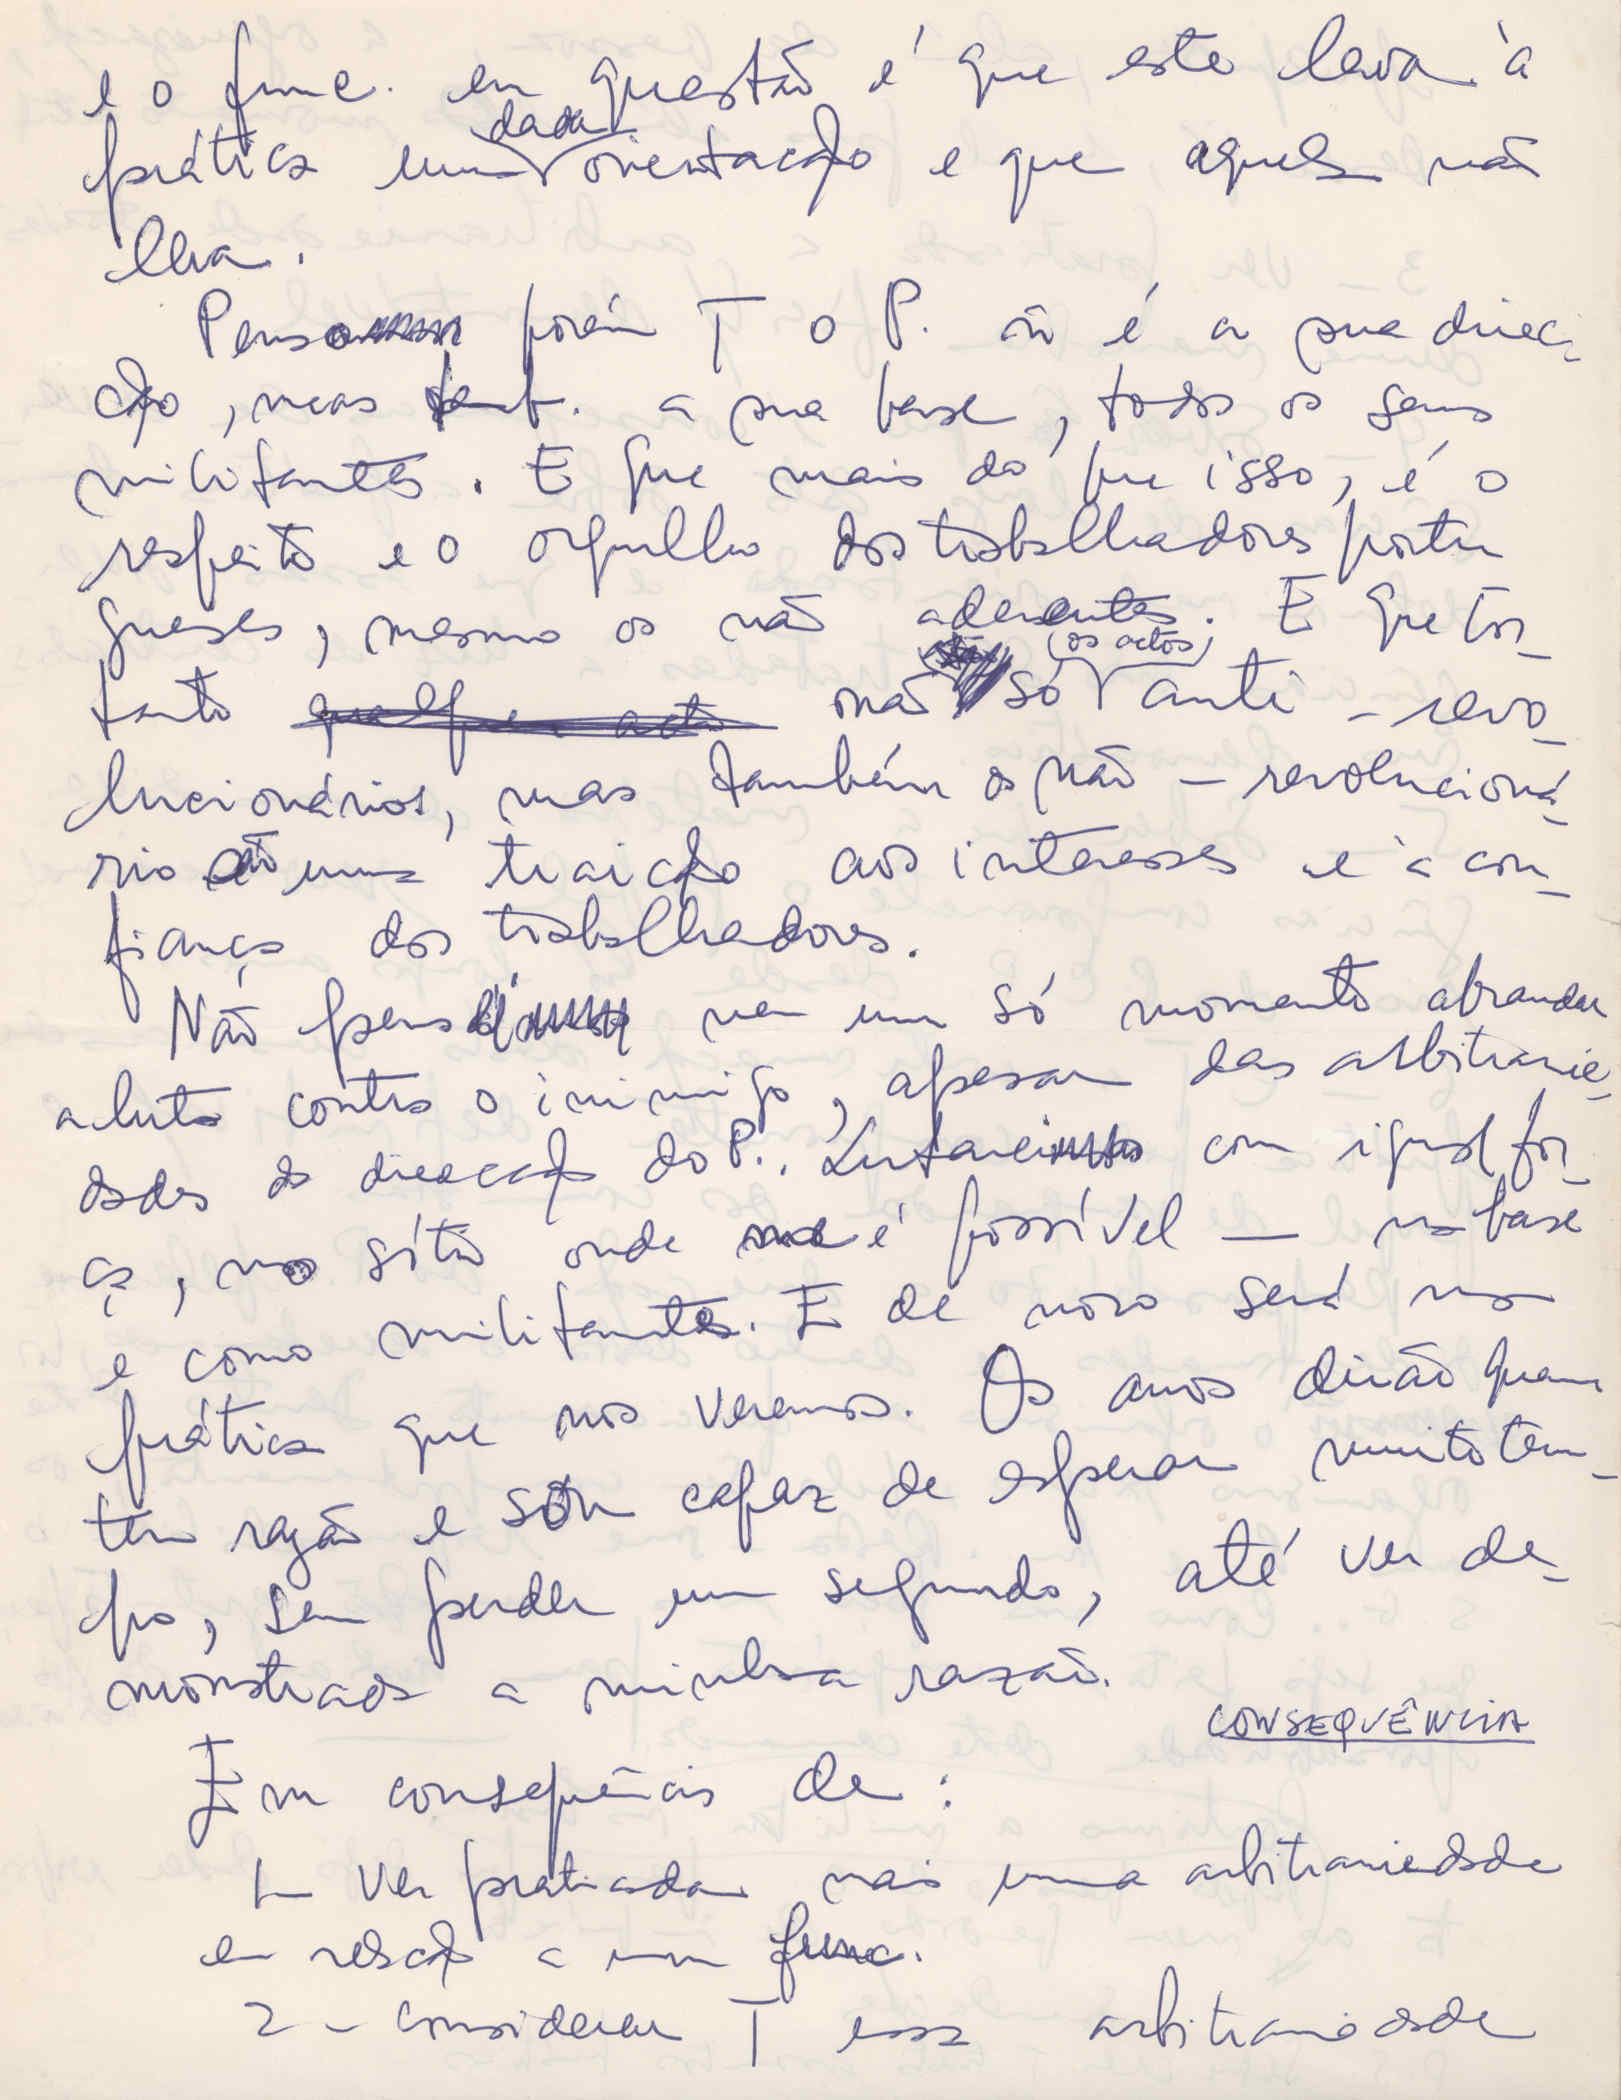 e o func. em questão é que este leva à
prática uma dada orientação e que aquela não
leva.
Penso porém T o P. não é a sua direc-
ção, mas tamb. a sua base, todos os seus
militantes. E que mais do que isso, é o
respeito e o orgulho dos trabalhadores portu
gueses, mesmo os não aderentes. E que por-
tanto qualquer acto não só (os actos) anti-revo-
lucionários, mas também os não-revolucioná-
rio são uma traição aos interesses e à con-
fiança dos trabalhadores.
Não penso nem um só momento abrandar
a luta contra o inimigo, apesar das arbitrarie-
dades da direcção do P.. Lutarei com igual for-
ça, no sítio onde me é possível — na base
e como militante. E de novo será na
prática que nos veremos. Os anos dirão quem
tem razão e sou capaz de esperar muito tem-
po, sem perder um segundo, até ver de-
monstrada a minha razão.
CONSEQUÊNCIA
Em consequência de:
1- Ver praticada mais uma arbitrariedade
em relação a um func.
2 - considerar T essa arbitrariedade